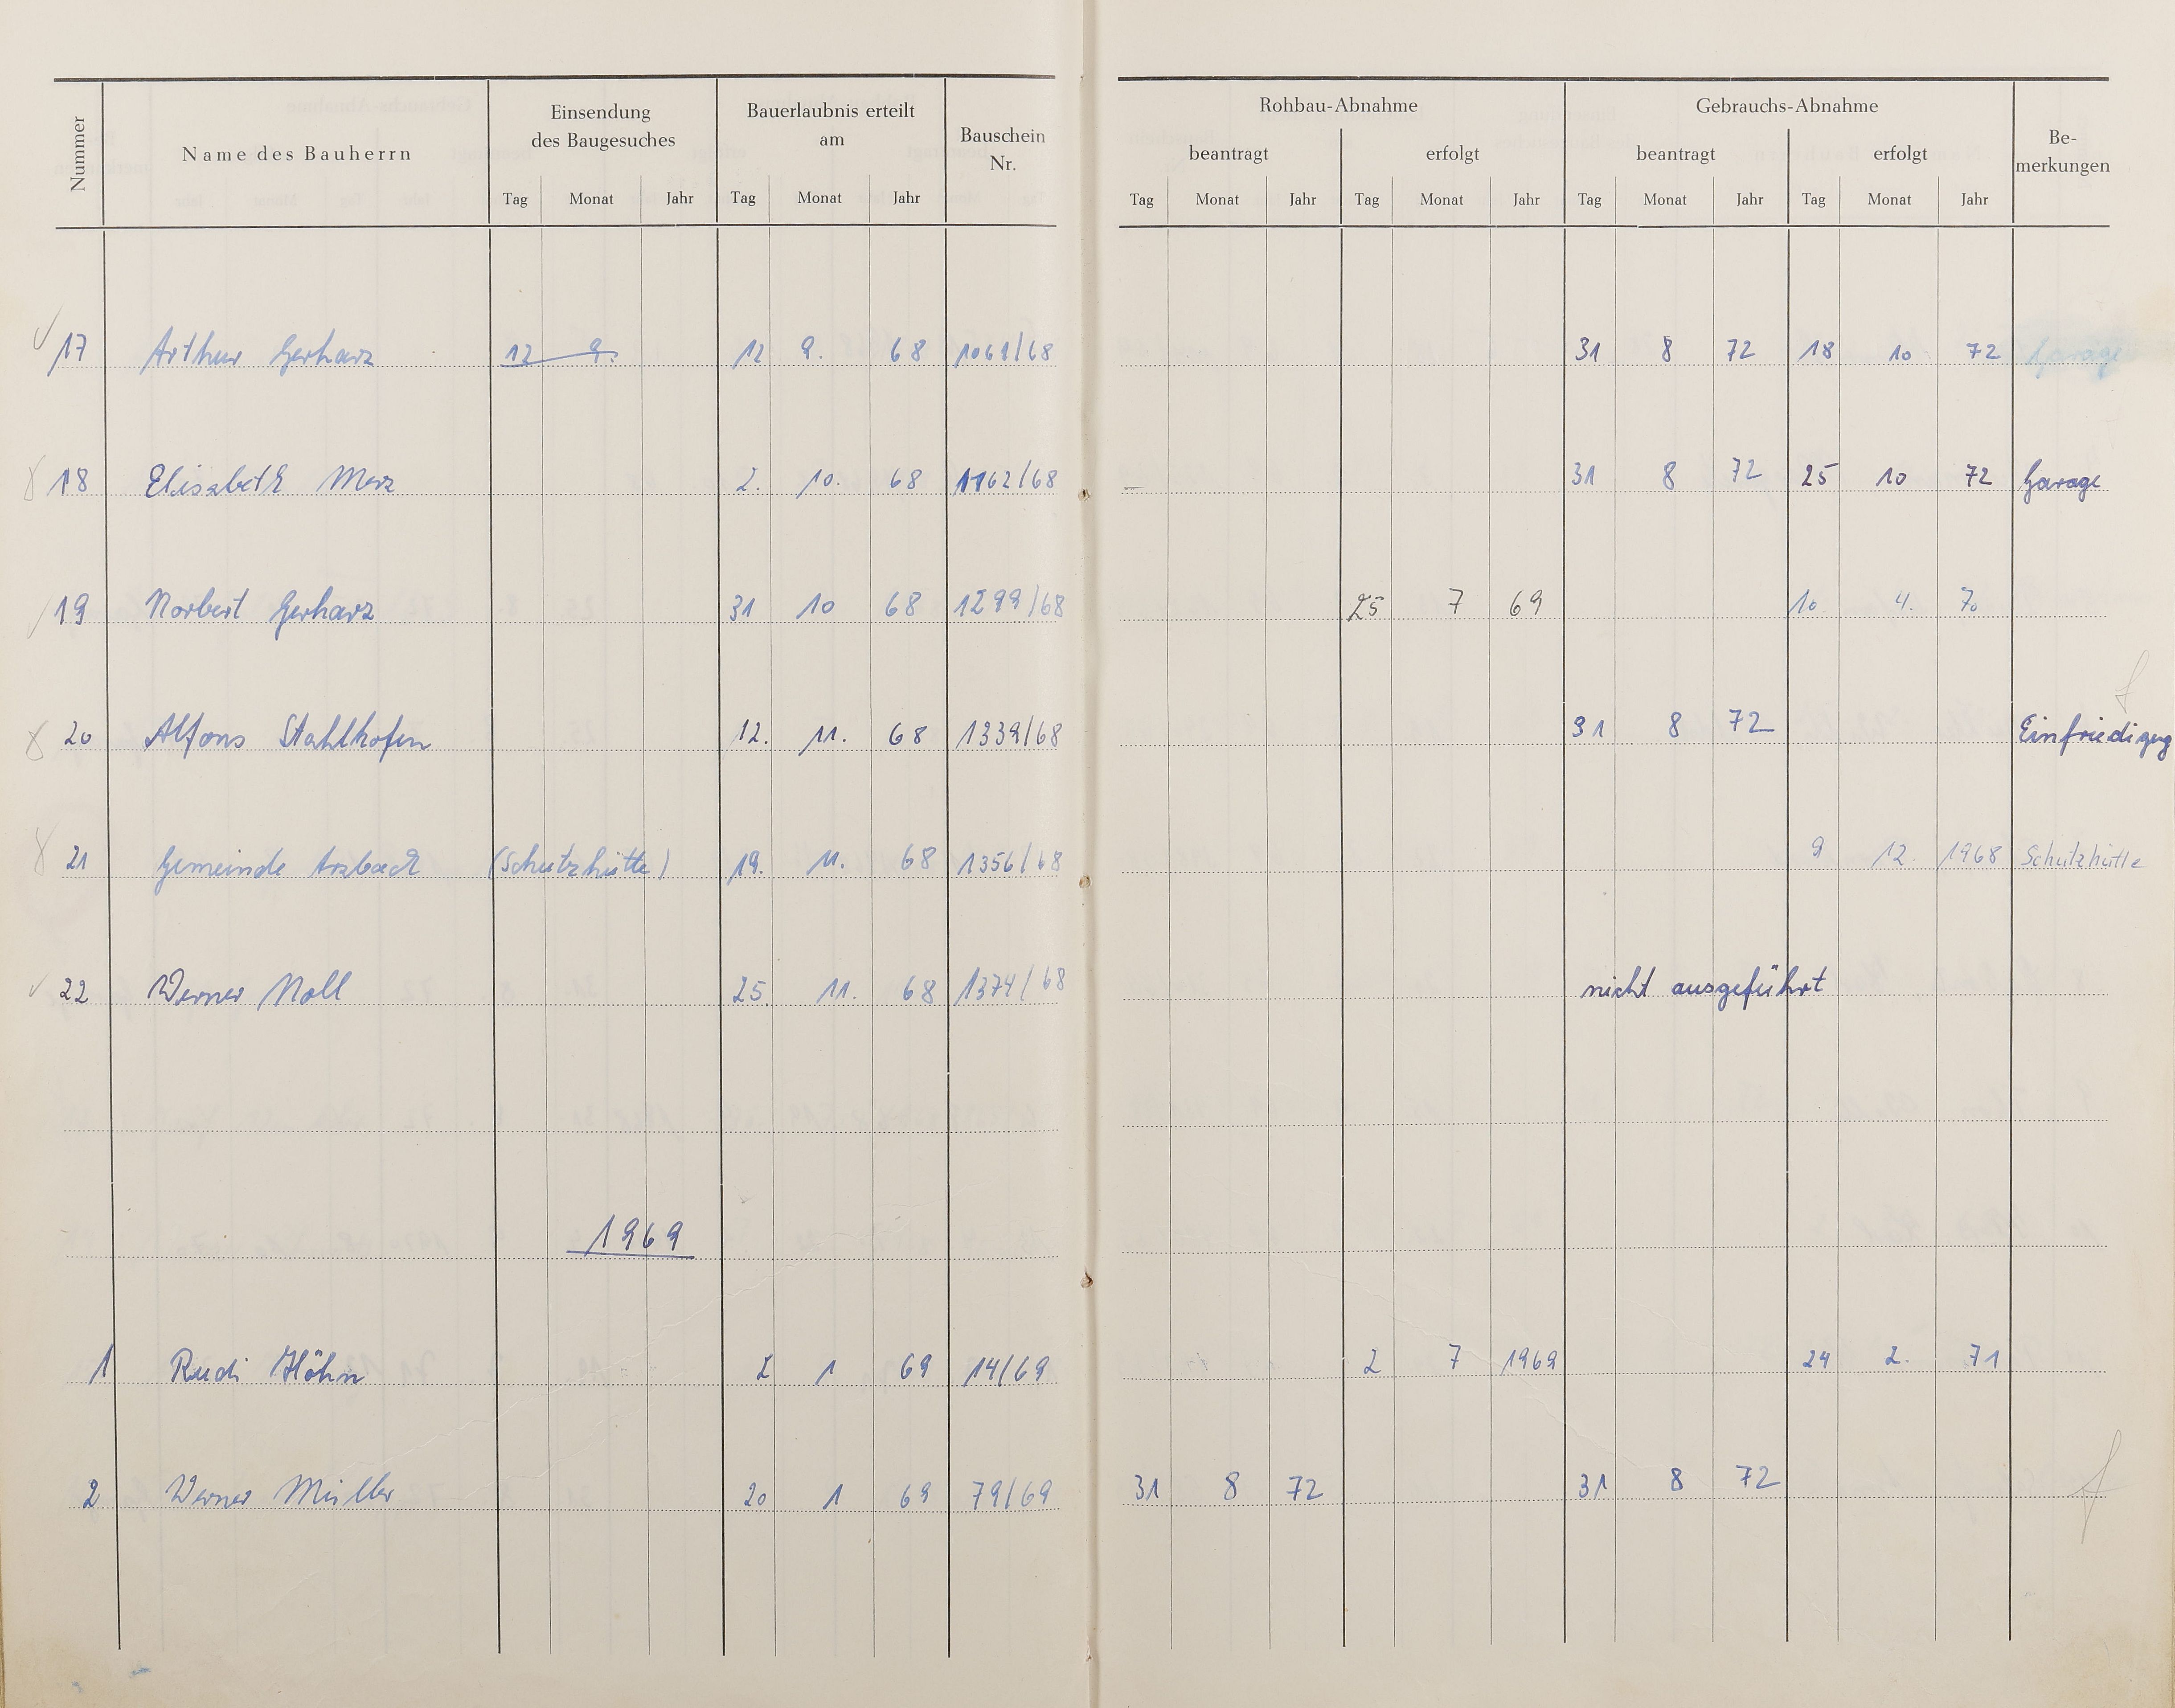 Nummer
Name des Bauherrn
Einsendung
des Baugesuches
Tag Monat Jahr
Bauerlaubnis erteilt
am
Tag Monat Jahr
Bauschein
Nr.
Rohbau-Abnahme
beantragt erfolgt
Tag Monat Jahr Tag Monat Jahr
Gebrauchs-Abnahme
beantragt erfolgt
Tag Monat Jahr Tag Monat Jahr
Be-
merkungen
17 Arthur Gerharz 12 9. 12 9. 68 1061/68 31 8 72 18 10 72 Garage
18 Elisabeth Merz 2. 10. 68 1162/68 31 8 72 25 10 72 Garage
19 Norbert Gerharz 31 10 68 1299/68 25 7 69 10 4. 70
20 Alfons Stahlhofen 12. 11. 68 1339/68 31 8 72 Einfriedigung
21 Gemeinde Arzbach (Schutzhütte) 19. 11. 68 1356/68 9 12. 1968 Schutzhütte
22 Werner Noll 25. 11. 68 1374/68 nicht ausgeführt
1969
1 Rudi Höhn 2 1 69 14/69 2 7 1969 24 2. 71
2 Werner Müller 20 1 69 79/69 31 8 72 31 8 72